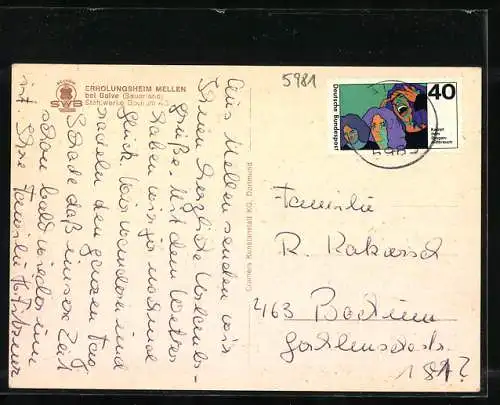 ERHOLUNGSHEIM MELLEN
bei Balve (Sauerland)
Stadtwerke Bochum AG
SWB
5981
Deutsche Bundespost
40
Kampf
dem
Drogen-
mißbrauch
Aus Mellen senden wir
Ihnen herzliche Urlaubs-
grüße. Mit dem Wetter
haben wir ja
Glück. Wir wandern und
den ganzen Tag.
Schade daß unsere Zeit
schon bald wieder um
ist. Ihre Familie
Cramers Kunstanstalt KG, Dortmund
Familie
R.
463 Bochum